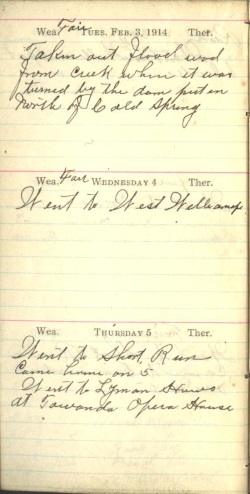 Wea. Fair TUES. FEB. 3, 1914 Ther.
Taken out flood wood
from creek when it was
turned by the dam put in
North of Cold Spring
Wea. Fair WEDNESDAY 4 Ther.
Went to West
Wea. THURSDAY 5 Ther.
Went to Short Run
Came home on 5
Went to Lyman Hows
at Towanda Opera House